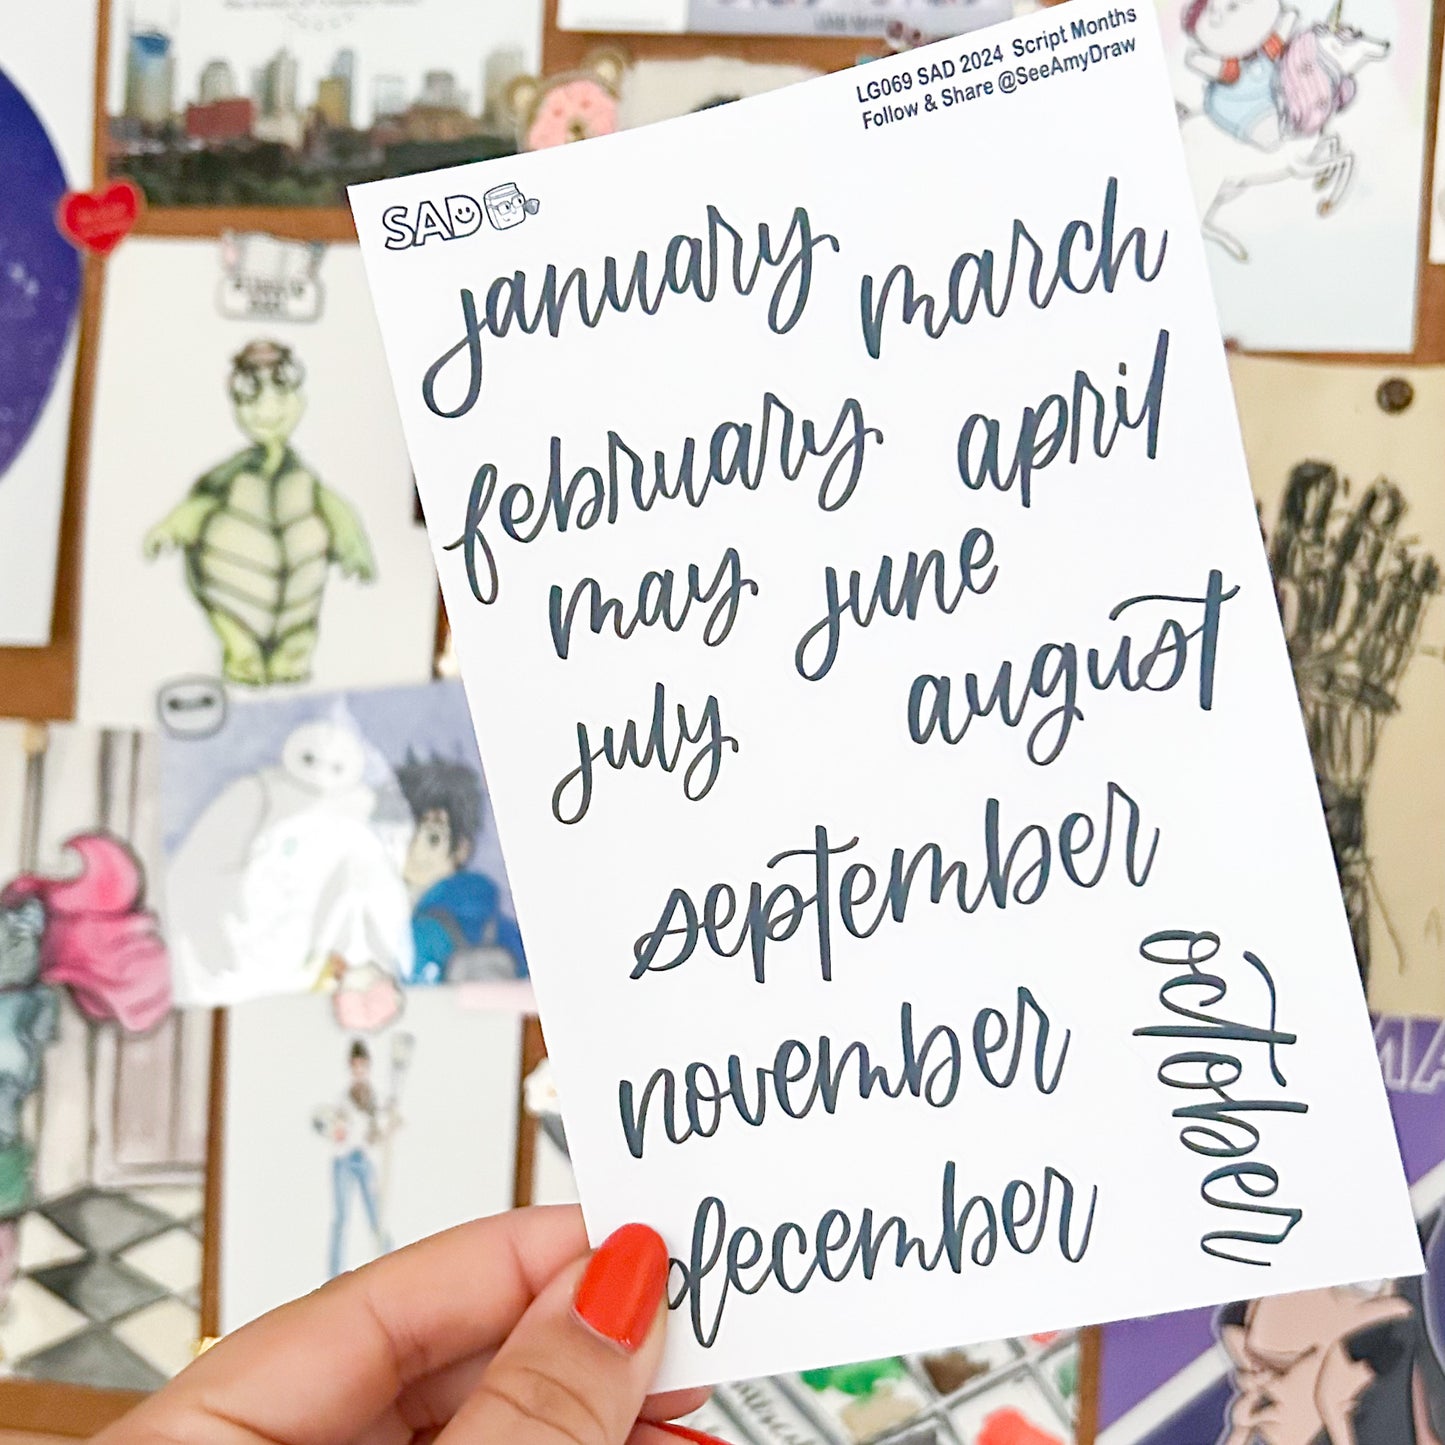 LG069 SAD 2024 Script Months
Follow & Share @SeeAmyDraw
SAD
january march
february april
may june
july august
september
october
november
december